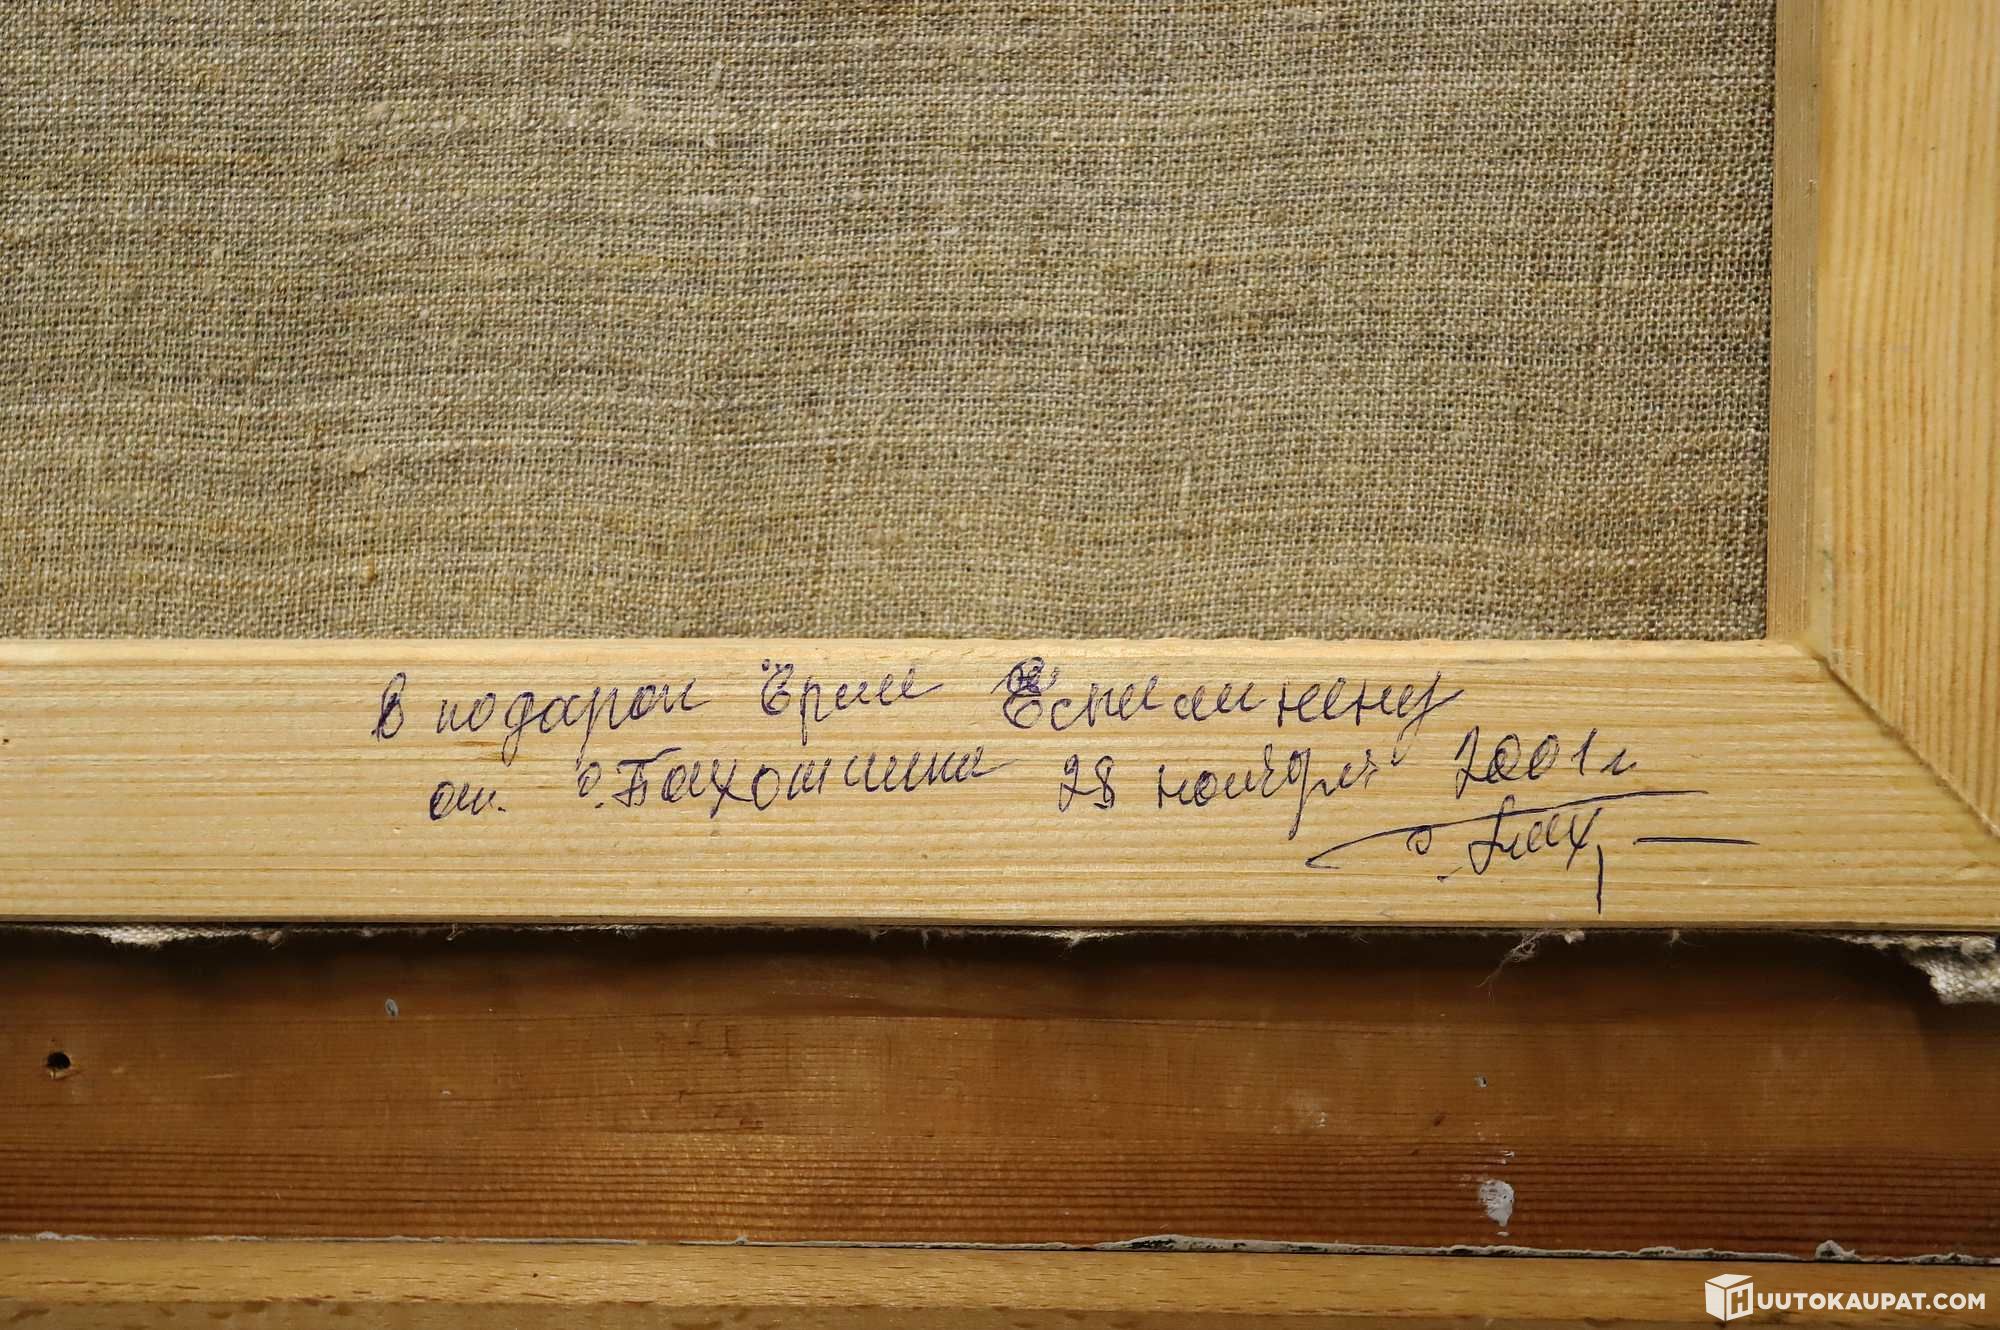 В подарок Ёрме Ёсмалинену
от О. Бахотшина 28 ноября 2001 г
HUUTOKAUPAT.COM